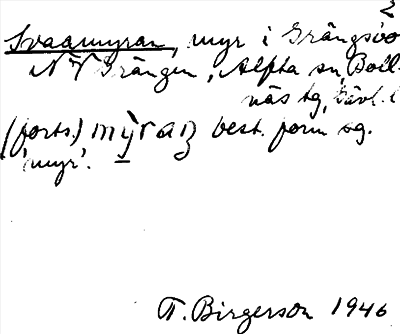 2
Svaamyran, myr i Grängsbo
N Grängen, Alfta sn, Boll-
näs tg, Gävl. l
(forts.) mỳraꞑ best. form sg.
'myr'.
T. Birgerson 1946